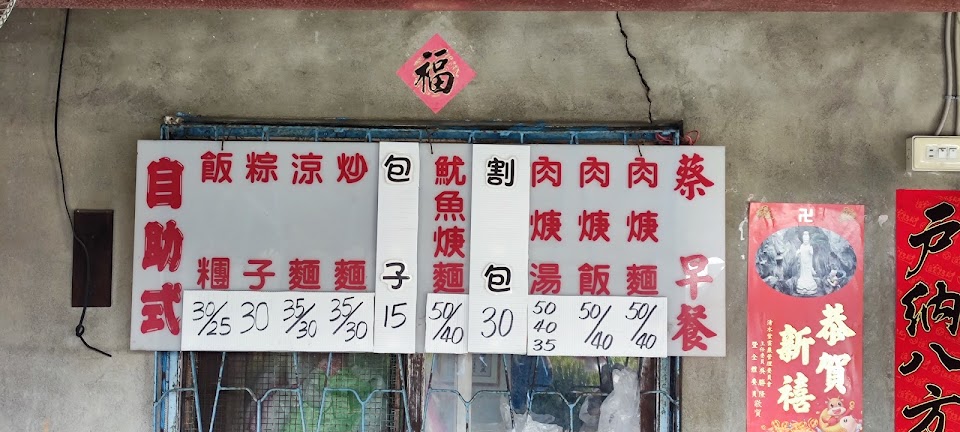 福
蔡 早餐
肉焿麵 50/40
肉焿飯 50/40
肉焿湯 50 40 35
割包 30
魷魚焿麵 50/40
包子 15
炒麵 35/30
涼麵 35/30
粽子 30
飯糰 30/25
自助式
卍
恭賀
新禧
戶納八方